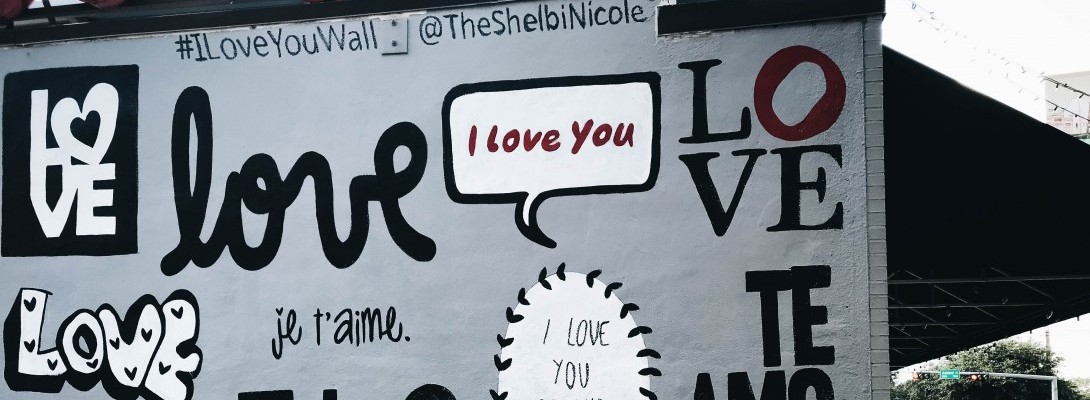 #ILoveYouWall @TheShelbiNicole
LO
VE
love
I love You
LO
VE
LOVE
je t'aime.
I LOVE
YOU
TE
AMO